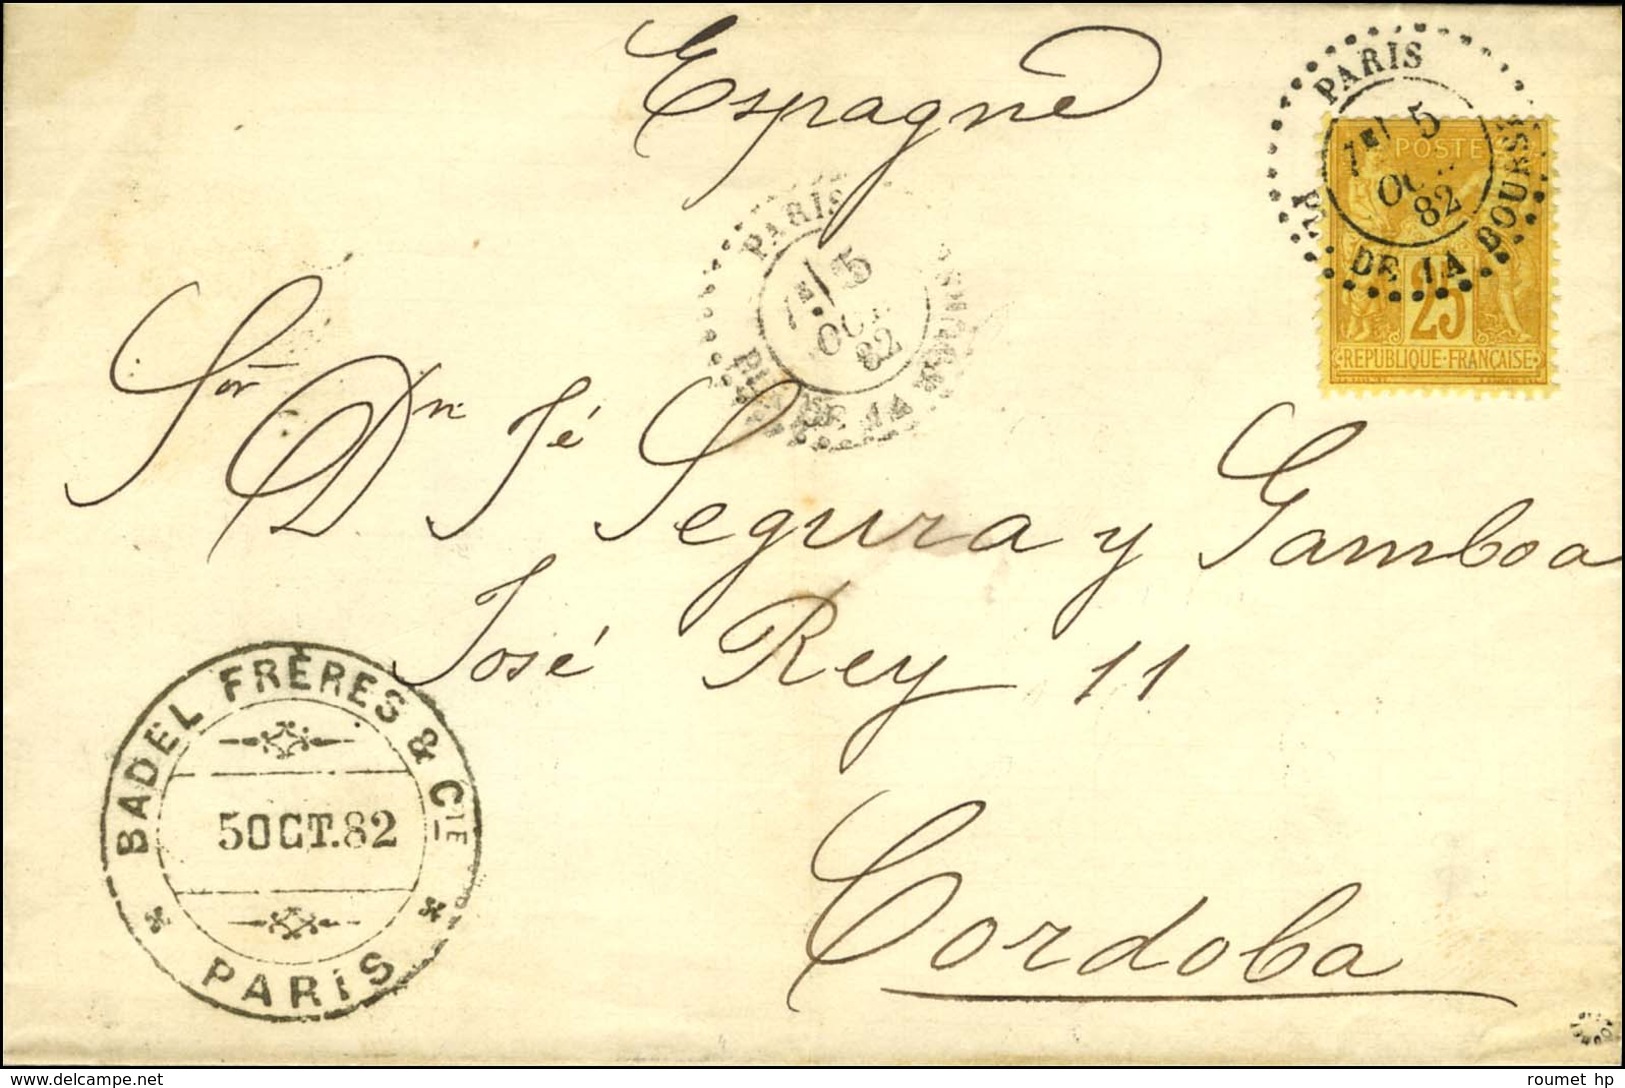 Espagne
PARIS
PL. DE LA BOURSE
7E/ 5
OCT
82
POSTE
25
REPUBLIQUE FRANÇAISE
PARIS
PL. DE LA BOURSE
7E/ 5
OCT
82
Sor Dn Jé Segura y Gamboa
José Rey 11
Cordoba
BADEL FRÈRES & CIE
5 OCT. 82
PARIS
delcampe.net
roumet hp